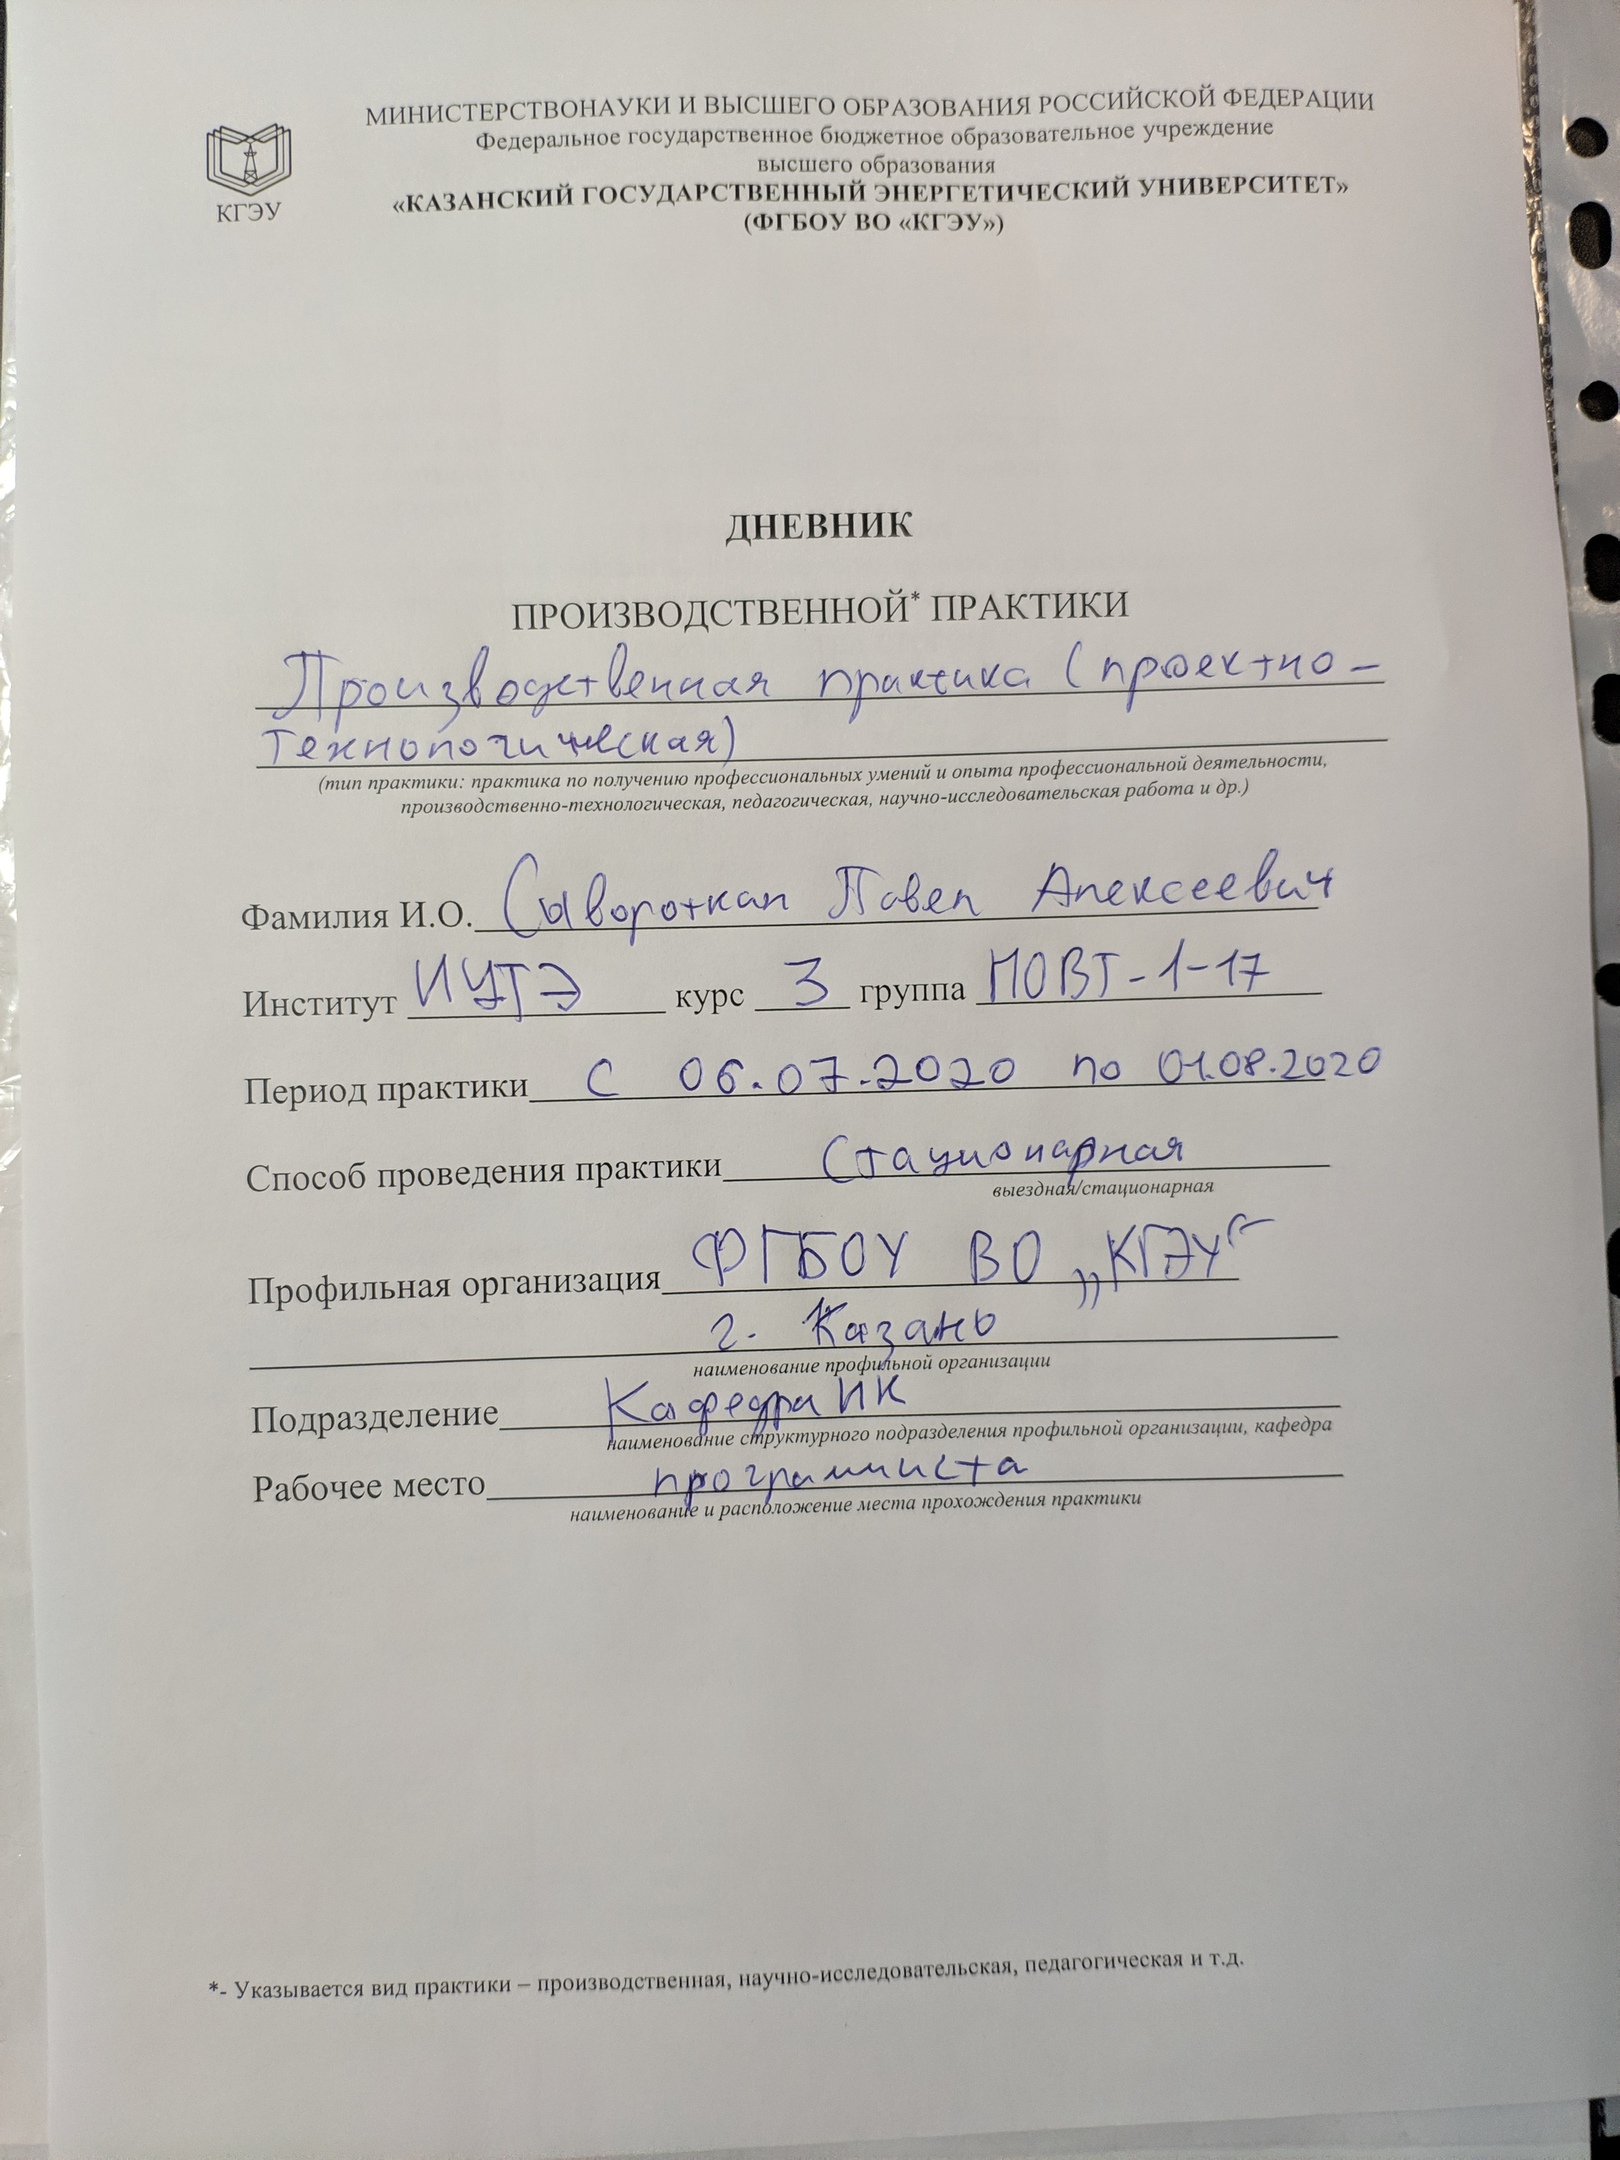 МИНИСТЕРСТВОНАУКИ И ВЫСШЕГО ОБРАЗОВАНИЯ РОССИЙСКОЙ ФЕДЕРАЦИИ
Федеральное государственное бюджетное образовательное учреждение
высшего образования
«КАЗАНСКИЙ ГОСУДАРСТВЕННЫЙ ЭНЕРГЕТИЧЕСКИЙ УНИВЕРСИТЕТ»
(ФГБОУ ВО «КГЭУ»)
КГЭУ
ДНЕВНИК
ПРОИЗВОДСТВЕННОЙ* ПРАКТИКИ
Производственная практика (проектно-
технологическая)
(тип практики: практика по получению профессиональных умений и опыта профессиональной деятельности,
производственно-технологическая, педагогическая, научно-исследовательская работа и др.)
Фамилия И.О. Сывороткин Павел Алексеевич
Институт ИЦТЭ курс 3 группа ПОВТ-1-17
Период практики с 06.07.2020 по 01.08.2020
Способ проведения практики Стационарная
выездная/стационарная
Профильная организация ФГБОУ ВО „КГЭУ“
г. Казань
наименование профильной организации
Подразделение Кафедра ИК
наименование структурного подразделения профильной организации, кафедра
Рабочее место программиста
наименование и расположение места прохождения практики
*- Указывается вид практики – производственная, научно-исследовательская, педагогическая и т.д.